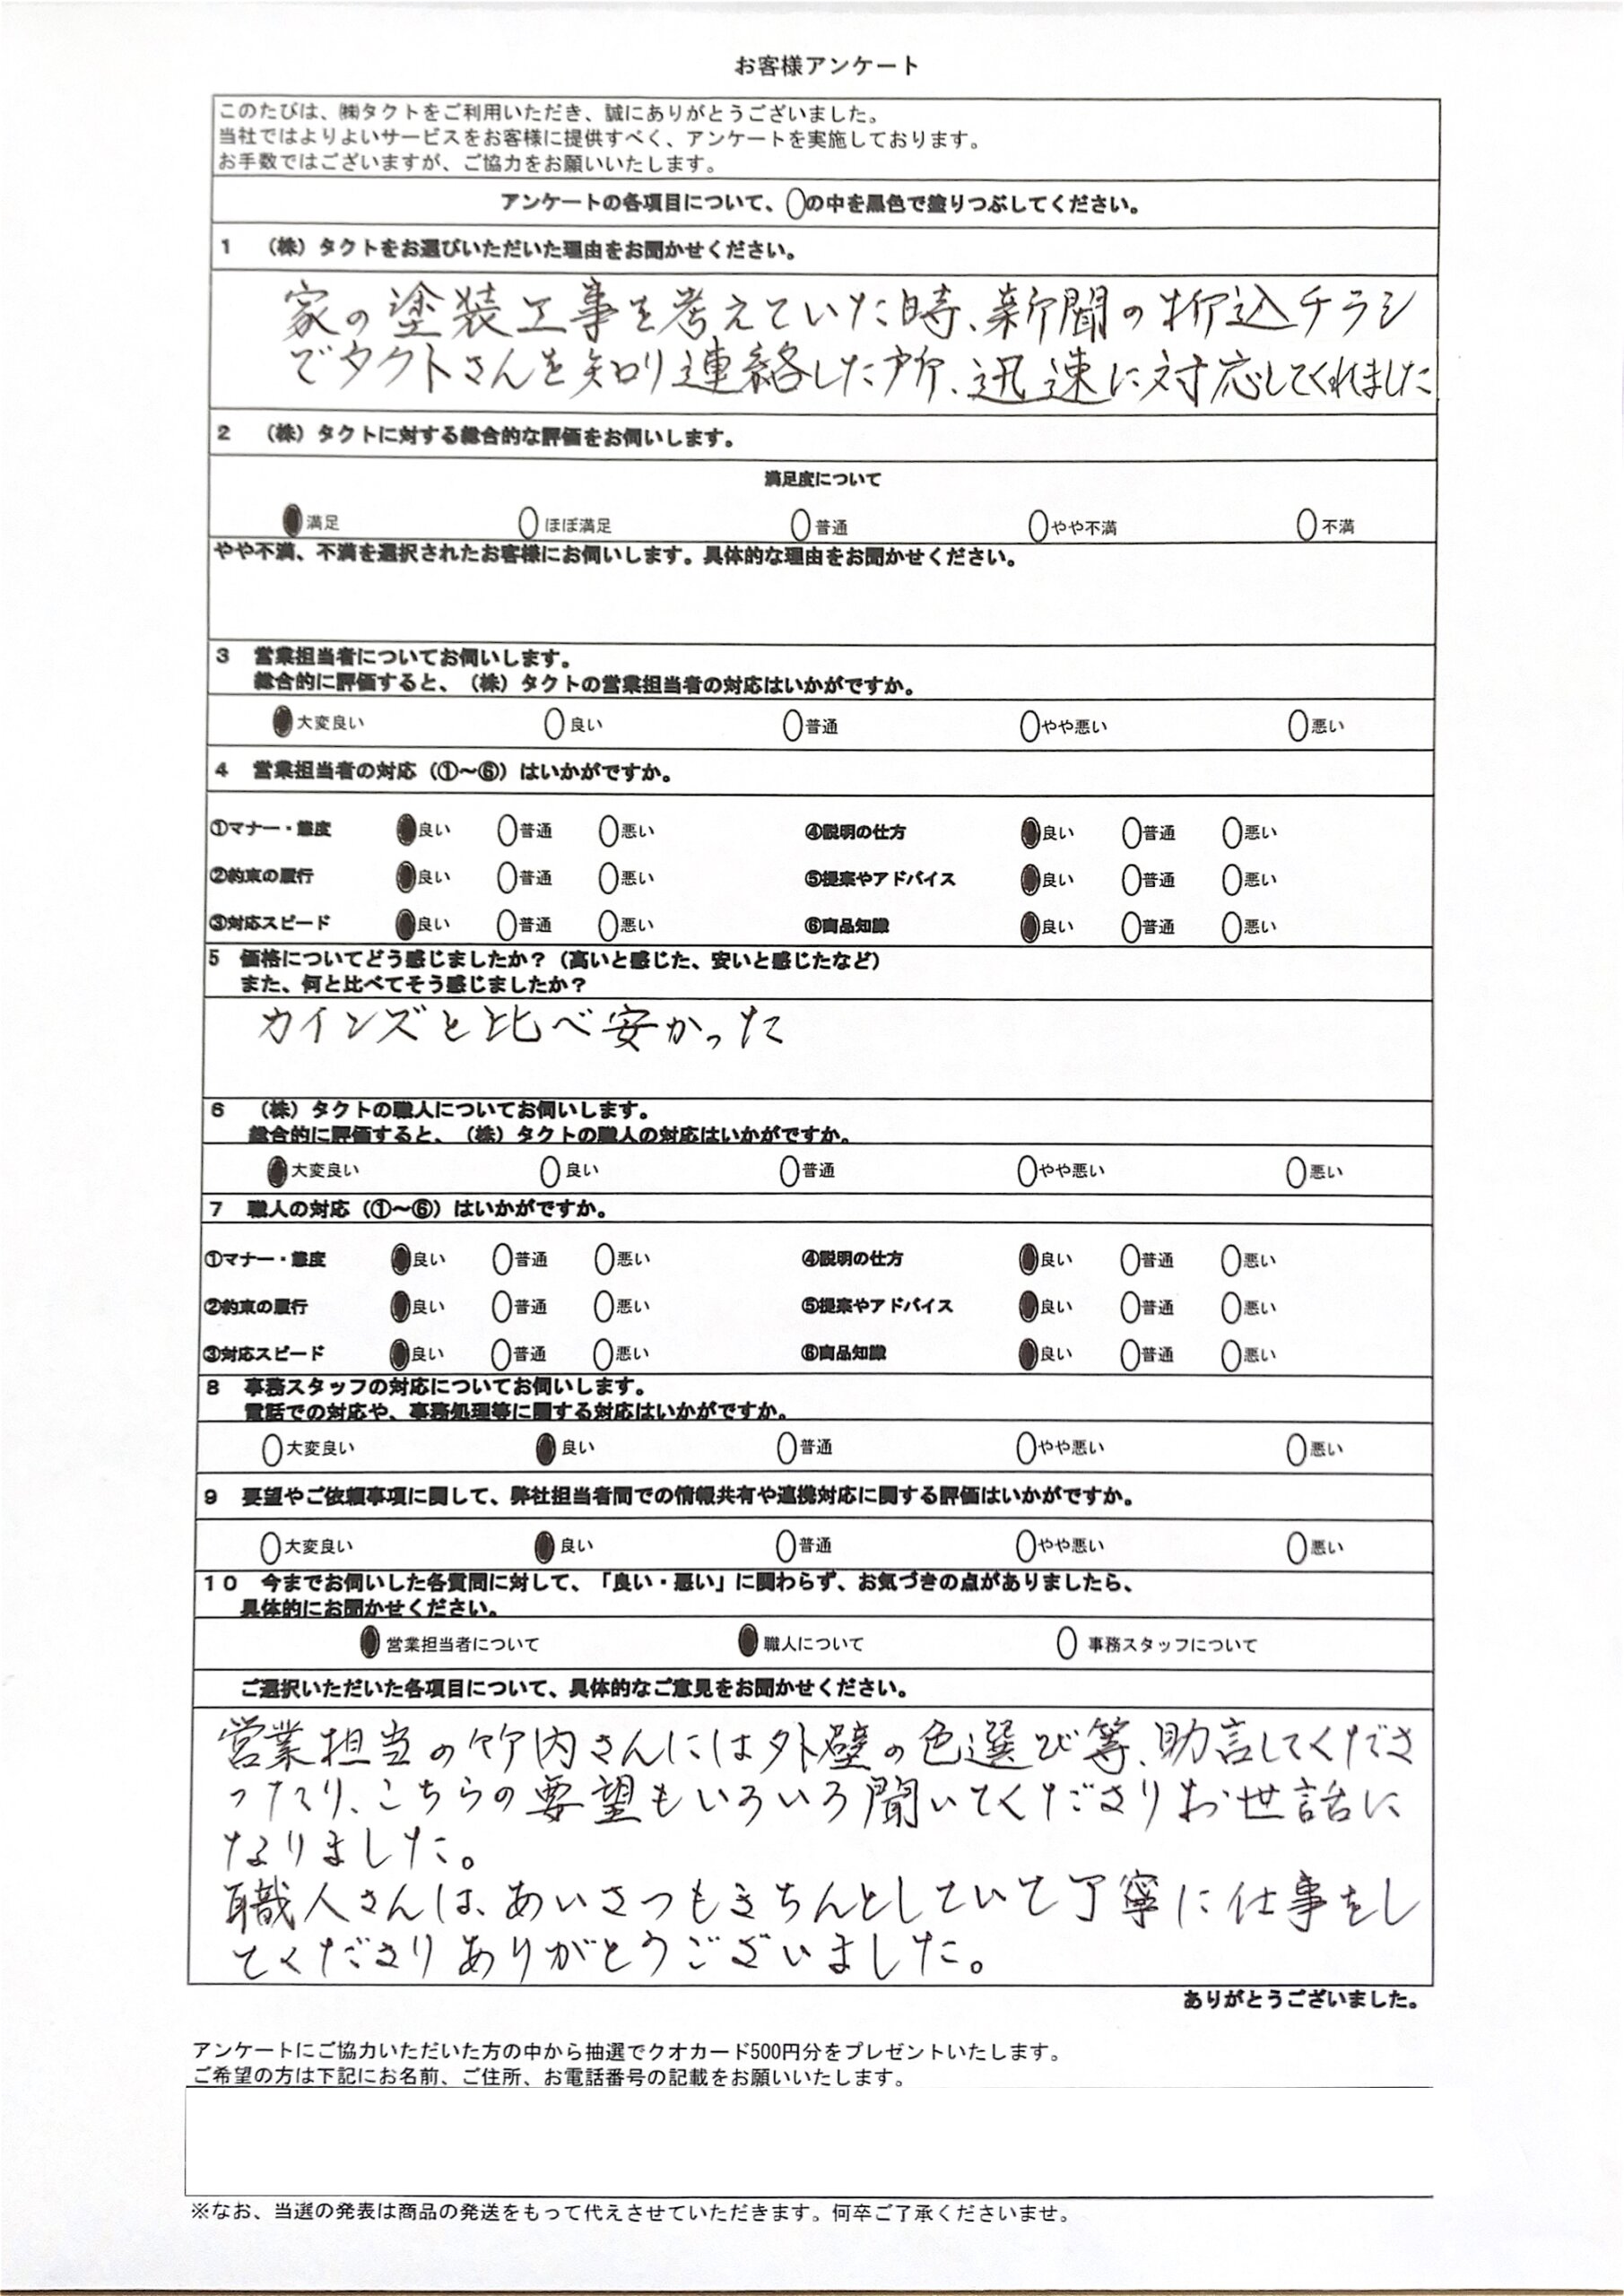 お客様アンケート
このたびは、㈱タクトをご利用いただき、誠にありがとうございました。
当社ではよりよいサービスをお客様に提供すべく、アンケートを実施しております。
お手数ではございますが、ご協力をお願いいたします。
アンケートの各項目について、○の中を黒色で塗りつぶしてください。
1 （株）タクトをお選びいただいた理由をお聞かせください。
家の塗装工事を考えていた時、新聞の折込チラシ
でタクトさんを知り連絡した所、迅速に対応してくれました
2 （株）タクトに対する総合的な評価をお伺いします。
満足度について
●満足 ○ほぼ満足 ○普通 ○やや不満 ○不満
やや不満、不満を選択されたお客様にお伺いします。具体的な理由をお聞かせください。
3 営業担当者についてお伺いします。
総合的に評価すると、（株）タクトの営業担当者の対応はいかがですか。
●大変良い ○良い ○普通 ○やや悪い ○悪い
4 営業担当者の対応（①～⑥）はいかがですか。
①マナー・態度 ●良い ○普通 ○悪い ④説明の仕方 ●良い ○普通 ○悪い
②約束の履行 ●良い ○普通 ○悪い ⑤提案やアドバイス ●良い ○普通 ○悪い
③対応スピード ●良い ○普通 ○悪い ⑥商品知識 ●良い ○普通 ○悪い
5 価格についてどう感じましたか？（高いと感じた、安いと感じたなど）
また、何と比べてそう感じましたか？
カインズと比べ安かった
6 （株）タクトの職人についてお伺いします。
総合的に評価すると、（株）タクトの職人の対応はいかがですか。
●大変良い ○良い ○普通 ○やや悪い ○悪い
7 職人の対応（①～⑥）はいかがですか。
①マナー・態度 ●良い ○普通 ○悪い ④説明の仕方 ●良い ○普通 ○悪い
②約束の履行 ●良い ○普通 ○悪い ⑤提案やアドバイス ●良い ○普通 ○悪い
③対応スピード ●良い ○普通 ○悪い ⑥商品知識 ●良い ○普通 ○悪い
8 事務スタッフの対応についてお伺いします。
電話での対応や、事務処理等に関する対応はいかがですか。
○大変良い ●良い ○普通 ○やや悪い ○悪い
9 要望やご依頼事項に関して、弊社担当者間での情報共有や連携対応に関する評価はいかがですか。
○大変良い ●良い ○普通 ○やや悪い ○悪い
10 今までお伺いした各質問に対して、「良い・悪い」に関わらず、お気づきの点がありましたら、
具体的にお聞かせください。
●営業担当者について ●職人について ○事務スタッフについて
ご選択いただいた各項目について、具体的なご意見をお聞かせください。
営業担当の竹内さんには外壁の色選び等、助言してくださ
ったり、こちらの要望もいろいろ聞いてくださりお世話に
なりました。
職人さんは、あいさつもきちんとしていて丁寧に仕事をし
てくださりありがとうございました。
ありがとうございました。
アンケートにご協力いただいた方の中から抽選でクオカード500円分をプレゼントいたします。
ご希望の方は下記にお名前、ご住所、お電話番号の記載をお願いいたします。
※なお、当選の発表は商品の発送をもって代えさせていただきます。何卒ご了承くださいませ。